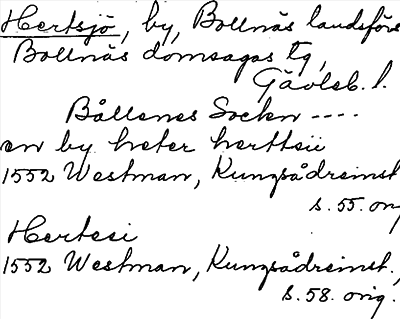 Hertsjö, by, Bollnäs landsförs
Bollnäs domsagas tg,
Gävleb. l.
Bållenes Sockn ----
en by heter herttsii
1552 Westman, Kungsådreinst
s. 55. orig
Hertesi
1552 Westman, Kungsådreinst.,
s. 58. orig.